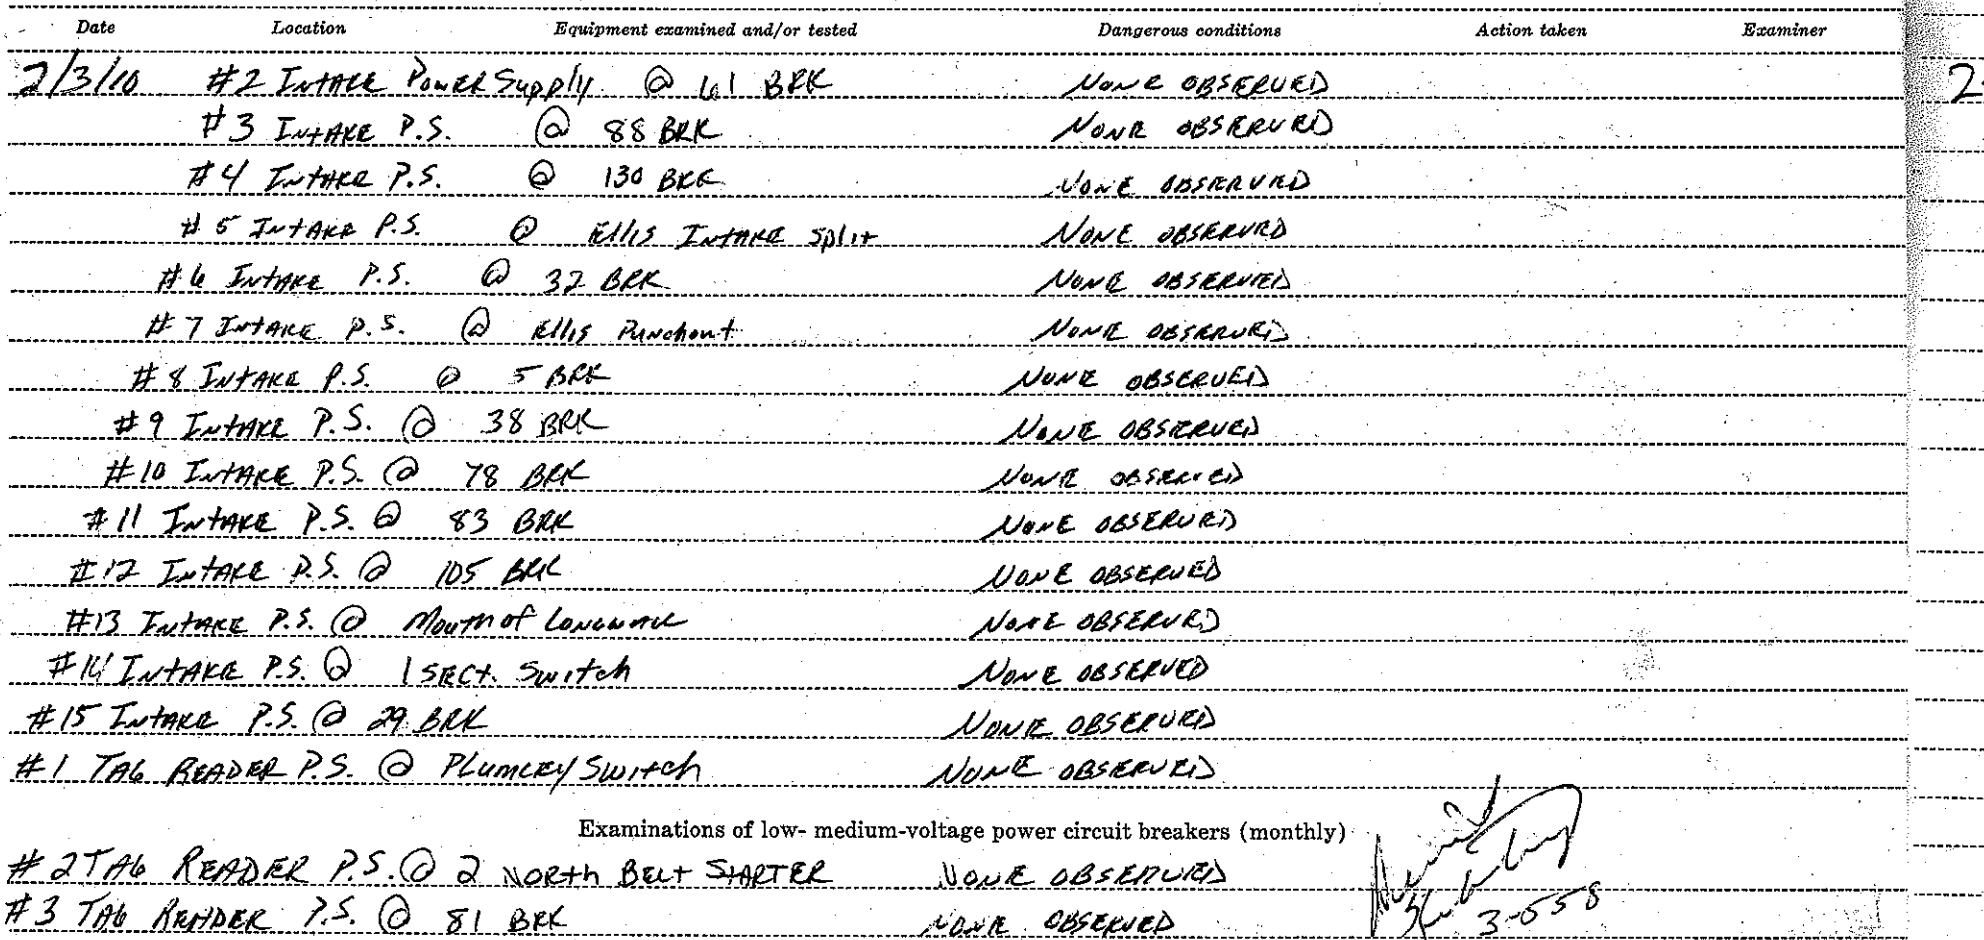 Date Location Equipment examined and/or tested Dangerous conditions Action taken Examiner
2/3/10 #2 INTAKE POWER Supply @ 61 BRK NONE OBSERVED 2
#3 INTAKE P.S. @ 88 BRK NONE OBSERVED
#4 INTAKE P.S. @ 130 BRK NONE OBSERVED
#5 INTAKE P.S. @ Ellis INTAKE Split NONE OBSERVED
#6 INTAKE P.S. @ 32 BRK NONE OBSERVED
#7 INTAKE P.S. @ Ellis Punchout NONE OBSERVED
#8 INTAKE P.S. @ 5 BRK NONE OBSERVED
#9 INTAKE P.S. @ 38 BRK NONE OBSERVED
#10 INTAKE P.S. @ 78 BRK NONE OBSERVED
#11 INTAKE P.S. @ 83 BRK NONE OBSERVED
#12 INTAKE P.S. @ 105 BRK NONE OBSERVED
#13 INTAKE P.S. @ Mouth of LONGWALL NONE OBSERVED
#14 INTAKE P.S. @ 1 SECT. Switch NONE OBSERVED
#15 INTAKE P.S. @ 29 BRK NONE OBSERVED
#1 TAG READER P.S. @ PLUMLEY Switch NONE OBSERVED
Examinations of low- medium-voltage power circuit breakers (monthly)
#2 TAG READER P.S. @ 2 NORTH BELT STARTER NONE OBSERVED
#3 TAG READER P.S. @ 81 BRK NONE OBSERVED
3-558